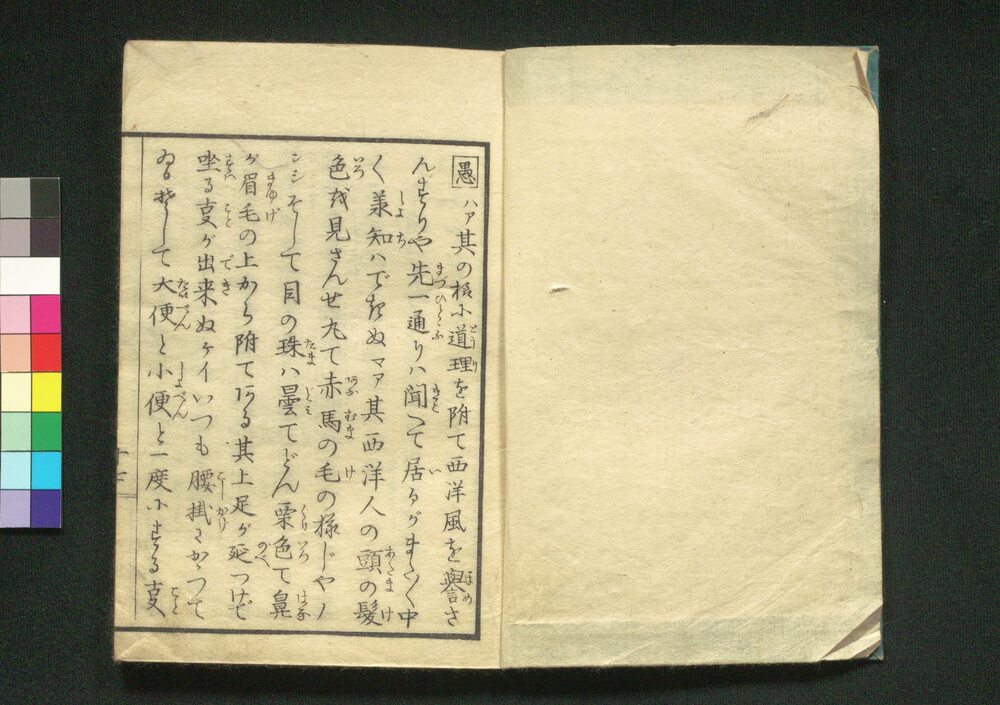 愚ハア其の様に道理を附て西洋風を譽さ
んすりや先一通りハ聞へて居るがまだ〳〵中
〳〵兼知ハでき
ぬマア其西洋人の頭の髪
色を見さんせ丸て赤馬の毛の様じやノ
シシそして目の珠ハ曇てどん栗色て鼻
が眉毛の上から附てある其上足が延つけで
坐る事が出来ぬケイいつも腰掛にかゝつて
ゐるそして大便と小便と一度にする事